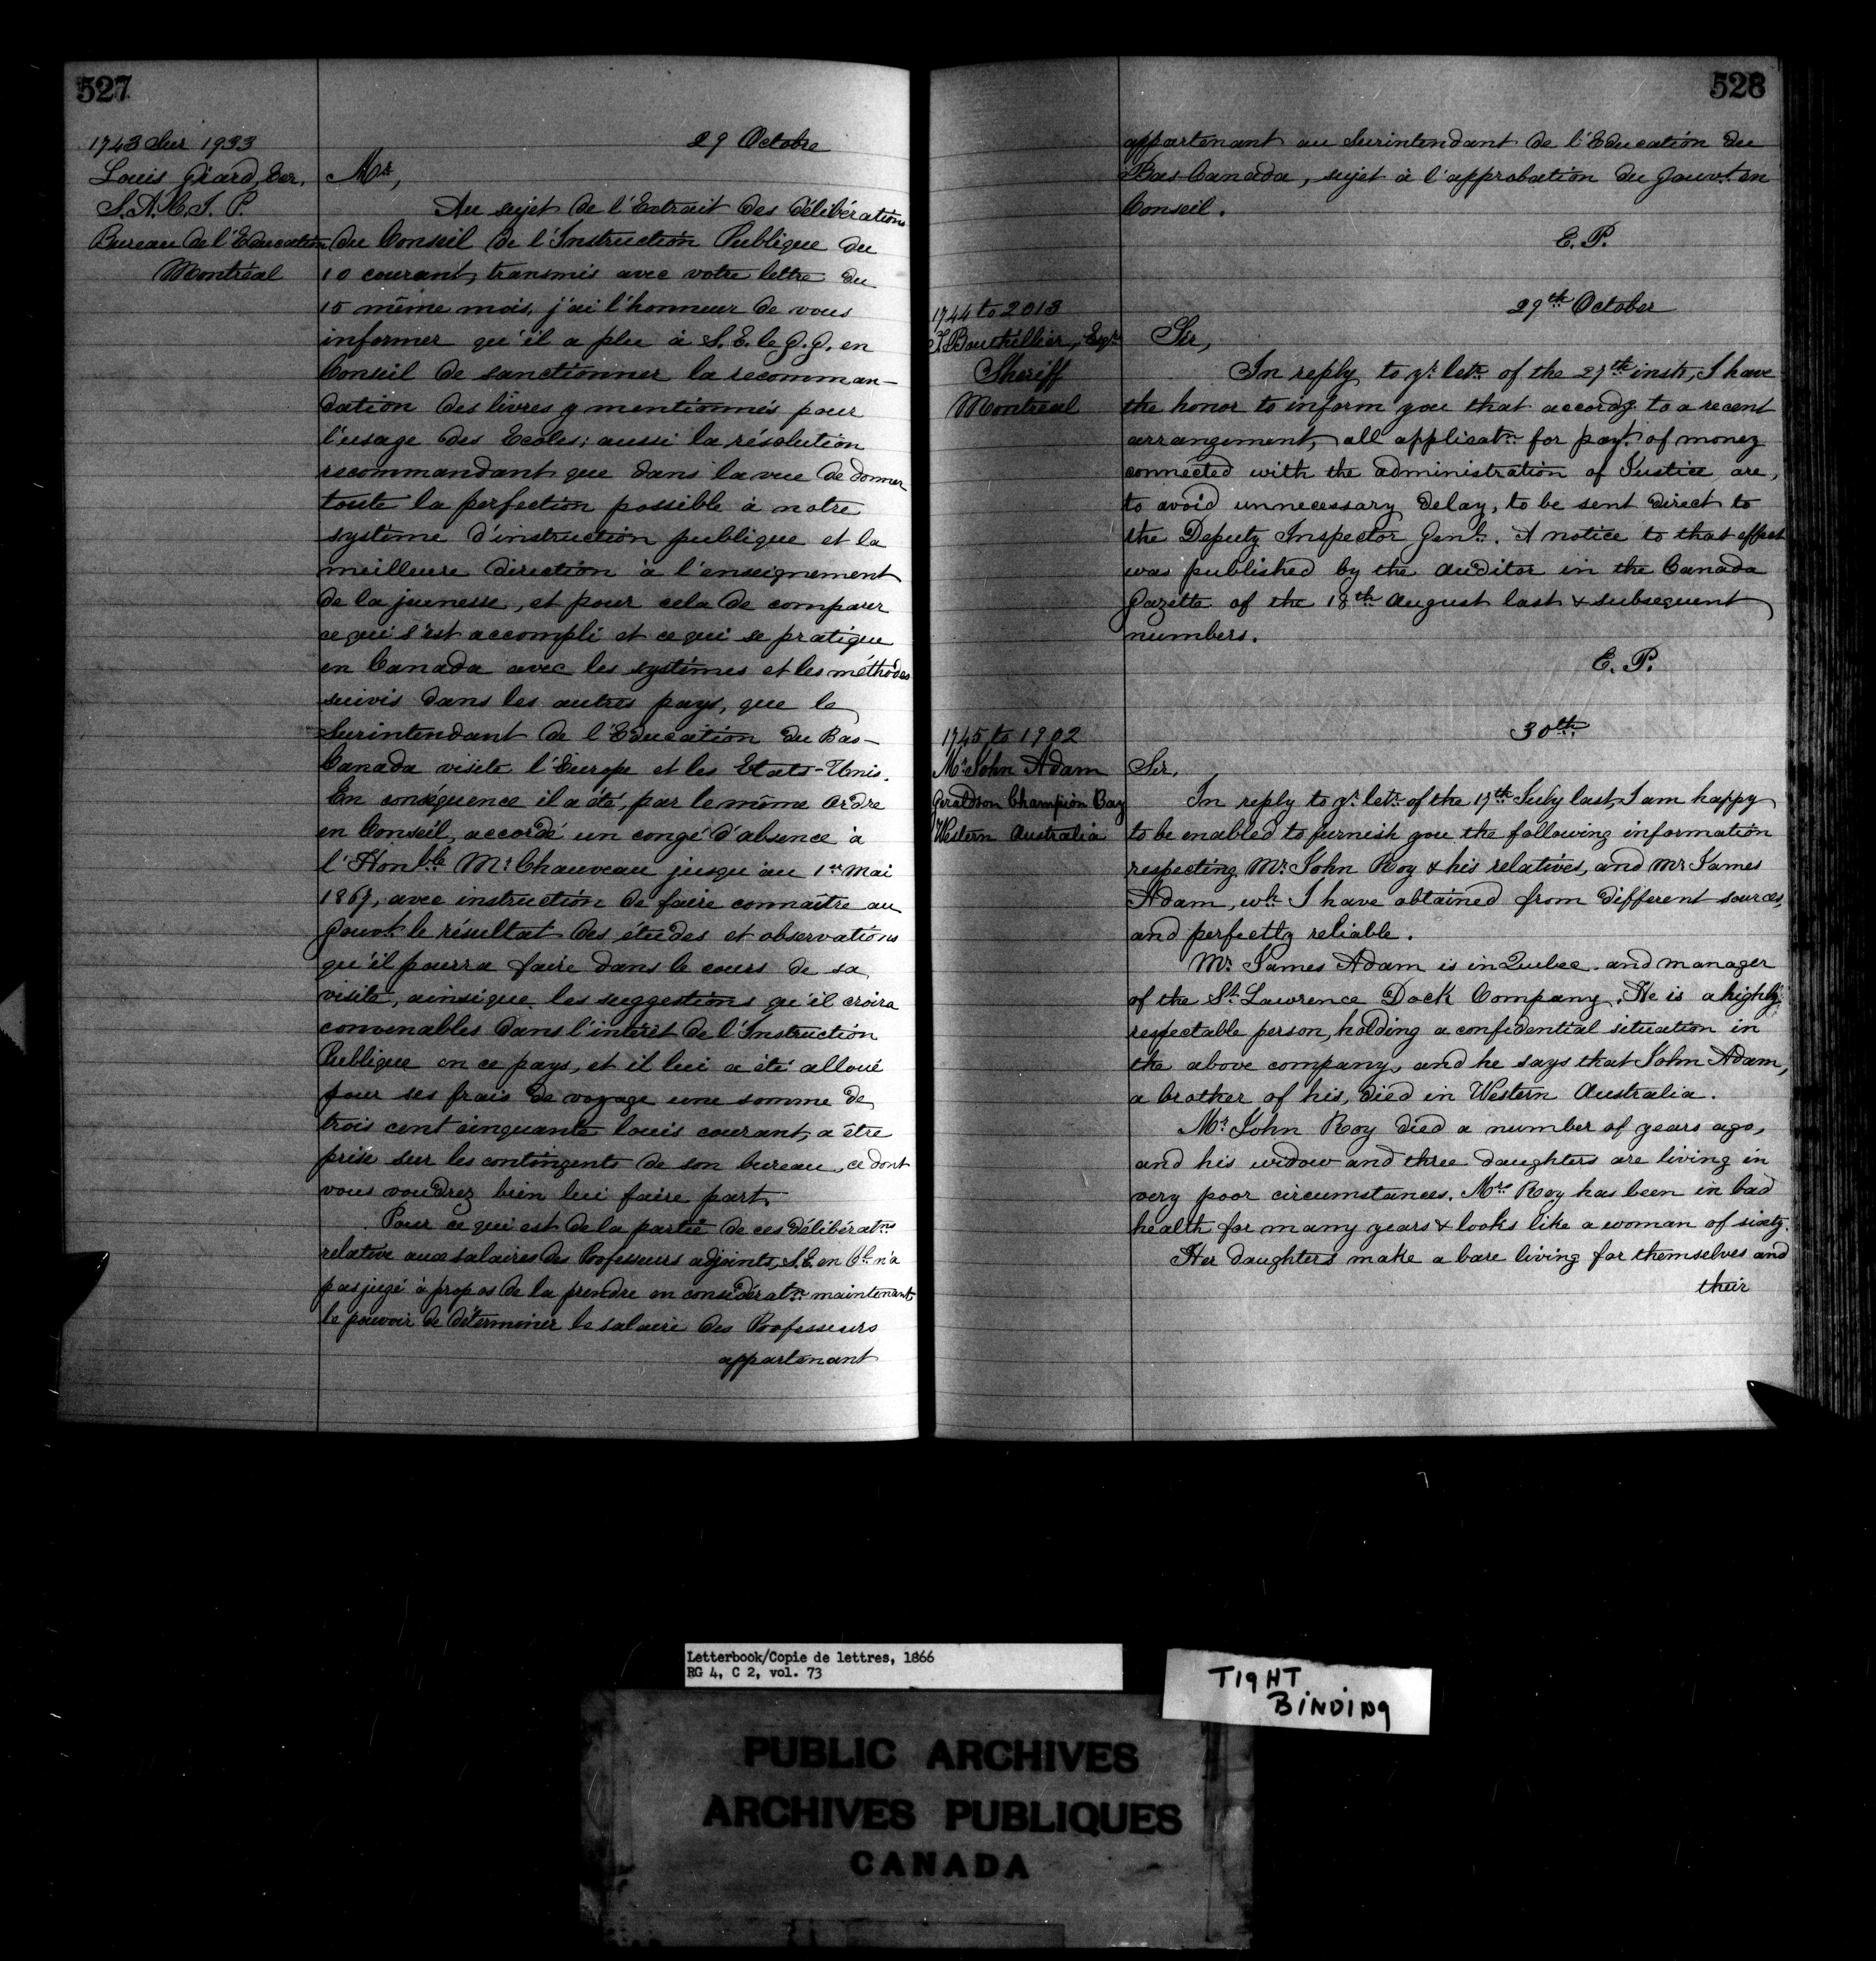 527
1743 Sur 1933
Louis Giard, Ecr.
S.A.C.I.P.
Bureau de l'Education
Montréal
29 Octobre
Mr,
Au sujet de l'Extrait des délibérations
du Conseil de l'Instruction Publique du
10 courant, transmis avec votre lettre du
15 même mois, j'ai l'honneur de vous
informer qu'il a plu à S.E. le G.G. en
Conseil de sanctionner la recomman-
dation des livres y mentionnés pour
l'usage des Ecoles; aussi la résolution
recommandant que dans la vue de donner
toute la perfection possible à notre
système d'instruction publique et la
meilleure direction à l'enseignement
de la jeunesse, et pour cela de comparer
ce qui s'est accompli et ce qui se pratique
en Canada avec les systèmes et les méthodes
suivis dans les autres pays, que le
Surintendant de l'Education du Bas-
Canada visite l'Europe et les Etats-Unis.
En conséquence il a été, par le même Ordre
en Conseil, accordé un congé d'absence à
l'Honble Mr Chauveau jusqu'au 1er Mai
1867, avec instruction de faire connaître au
Gouvt le résultat des études et observations
qu'il pourra faire dans le cours de sa
visite, ainsi que les suggestions qu'il croira
convenables dans l'intérêt de l'Instruction
Publique en ce pays, et il lui a été alloué
pour ses frais de voyage une somme de
trois cent cinquante louis courant, a être
prise sur les contingents de son bureau, ce dont
vous voudrez bien lui faire part.
Pour ce qui est de la partie de ces délibératns
relative aux salaires des Professeurs adjoints, S.E. en Cl n'a
pas jugé à propos de la prendre en considératn maintenant
le pouvoir de déterminer le salaire des Professeurs
appartenant
528
appartenant au Surintendant de l'Education du
Bas-Canada, sujet à l'approbation du Gouvt en
Conseil.
E.P.
1744 to 2013
T. Bouthillier, Esqr
Sheriff
Montreal
29th October
Sir,
In reply to yr letr of the 27th inst, I have
the honor to inform you that accordg to a recent
arrangement, all applicatn for payt of money
connected with the administration of Justice are,
to avoid unnecessary delay, to be sent direct to
the Deputy Inspector Genl. A notice to that effect
was published by the Auditor in the Canada
Gazette of the 18th August last & subsequent
numbers.
E.P.
1745 to 1902
Mr John Adam
Geraldson Champion Bay
Western Australia
30th
Sir,
In reply to yr letr of the 17th July last, I am happy
to be enabled to furnish you the following information
respecting Mr John Roy & his relatives, and Mr James
Adam, wh I have obtained from different sources,
and perfectly reliable.
Mr James Adam is in Quebec and manager
of the St. Lawrence Dock Company. He is a highly
respectable person, holding a confidential situation in
the above company, and he says that John Adam,
a brother of his, died in Western Australia.
Mr John Roy died a number of years ago,
and his widow and three daughters are living in
very poor circumstances. Mrs Roy has been in bad
health for many years & looks like a woman of sixty.
Her daughters make a bare living for themselves and
their
Letterbook/Copie de lettres, 1866
RG 4, C 2, vol. 73
TIGHT
BINDING
PUBLIC ARCHIVES
ARCHIVES PUBLIQUES
CANADA